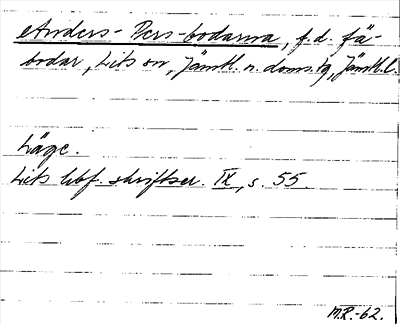 Anders-Pers-bodarna, f.d. fä-
bodar, Lits sn, Jämtl. n. doms.tg, Jämtl. l.
Läge.
Lits hbf. skriftser. IX, s. 55.
M.R.-62.